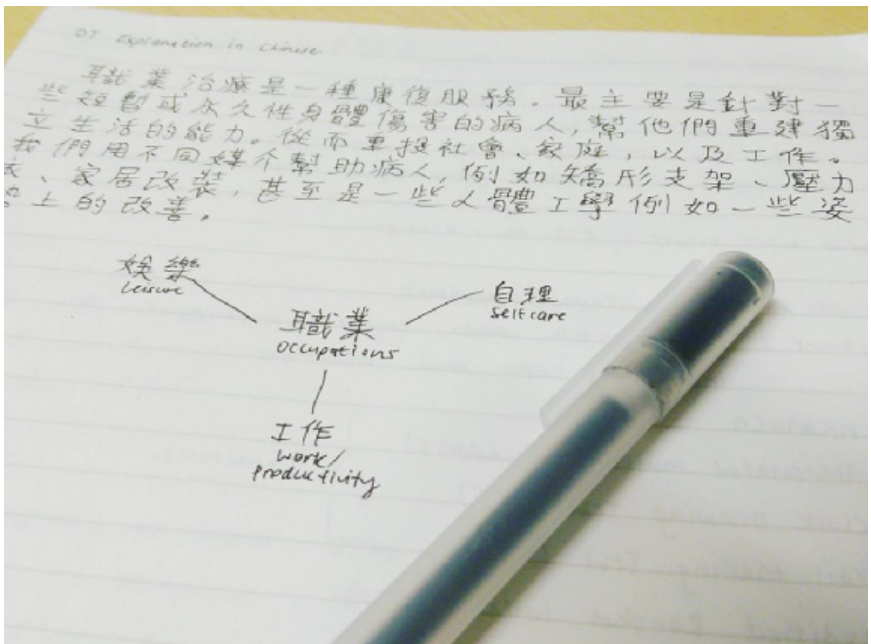 OT Explanation in Chinese
職業治療是一種康復服務。最主要是針對一
些短暫或永久性身體傷害的病人,幫他們重建獨
立生活的能力。從而重投社會、家庭,以及工作。
我們用不同媒介幫助病人,例如矯形支架、壓力
衣、家居改裝,甚至是一些人體工學例如一些姿
上的改善。
娛樂
Leisure
自理
Selfcare
職業
Occupations
工作
work/
productivity